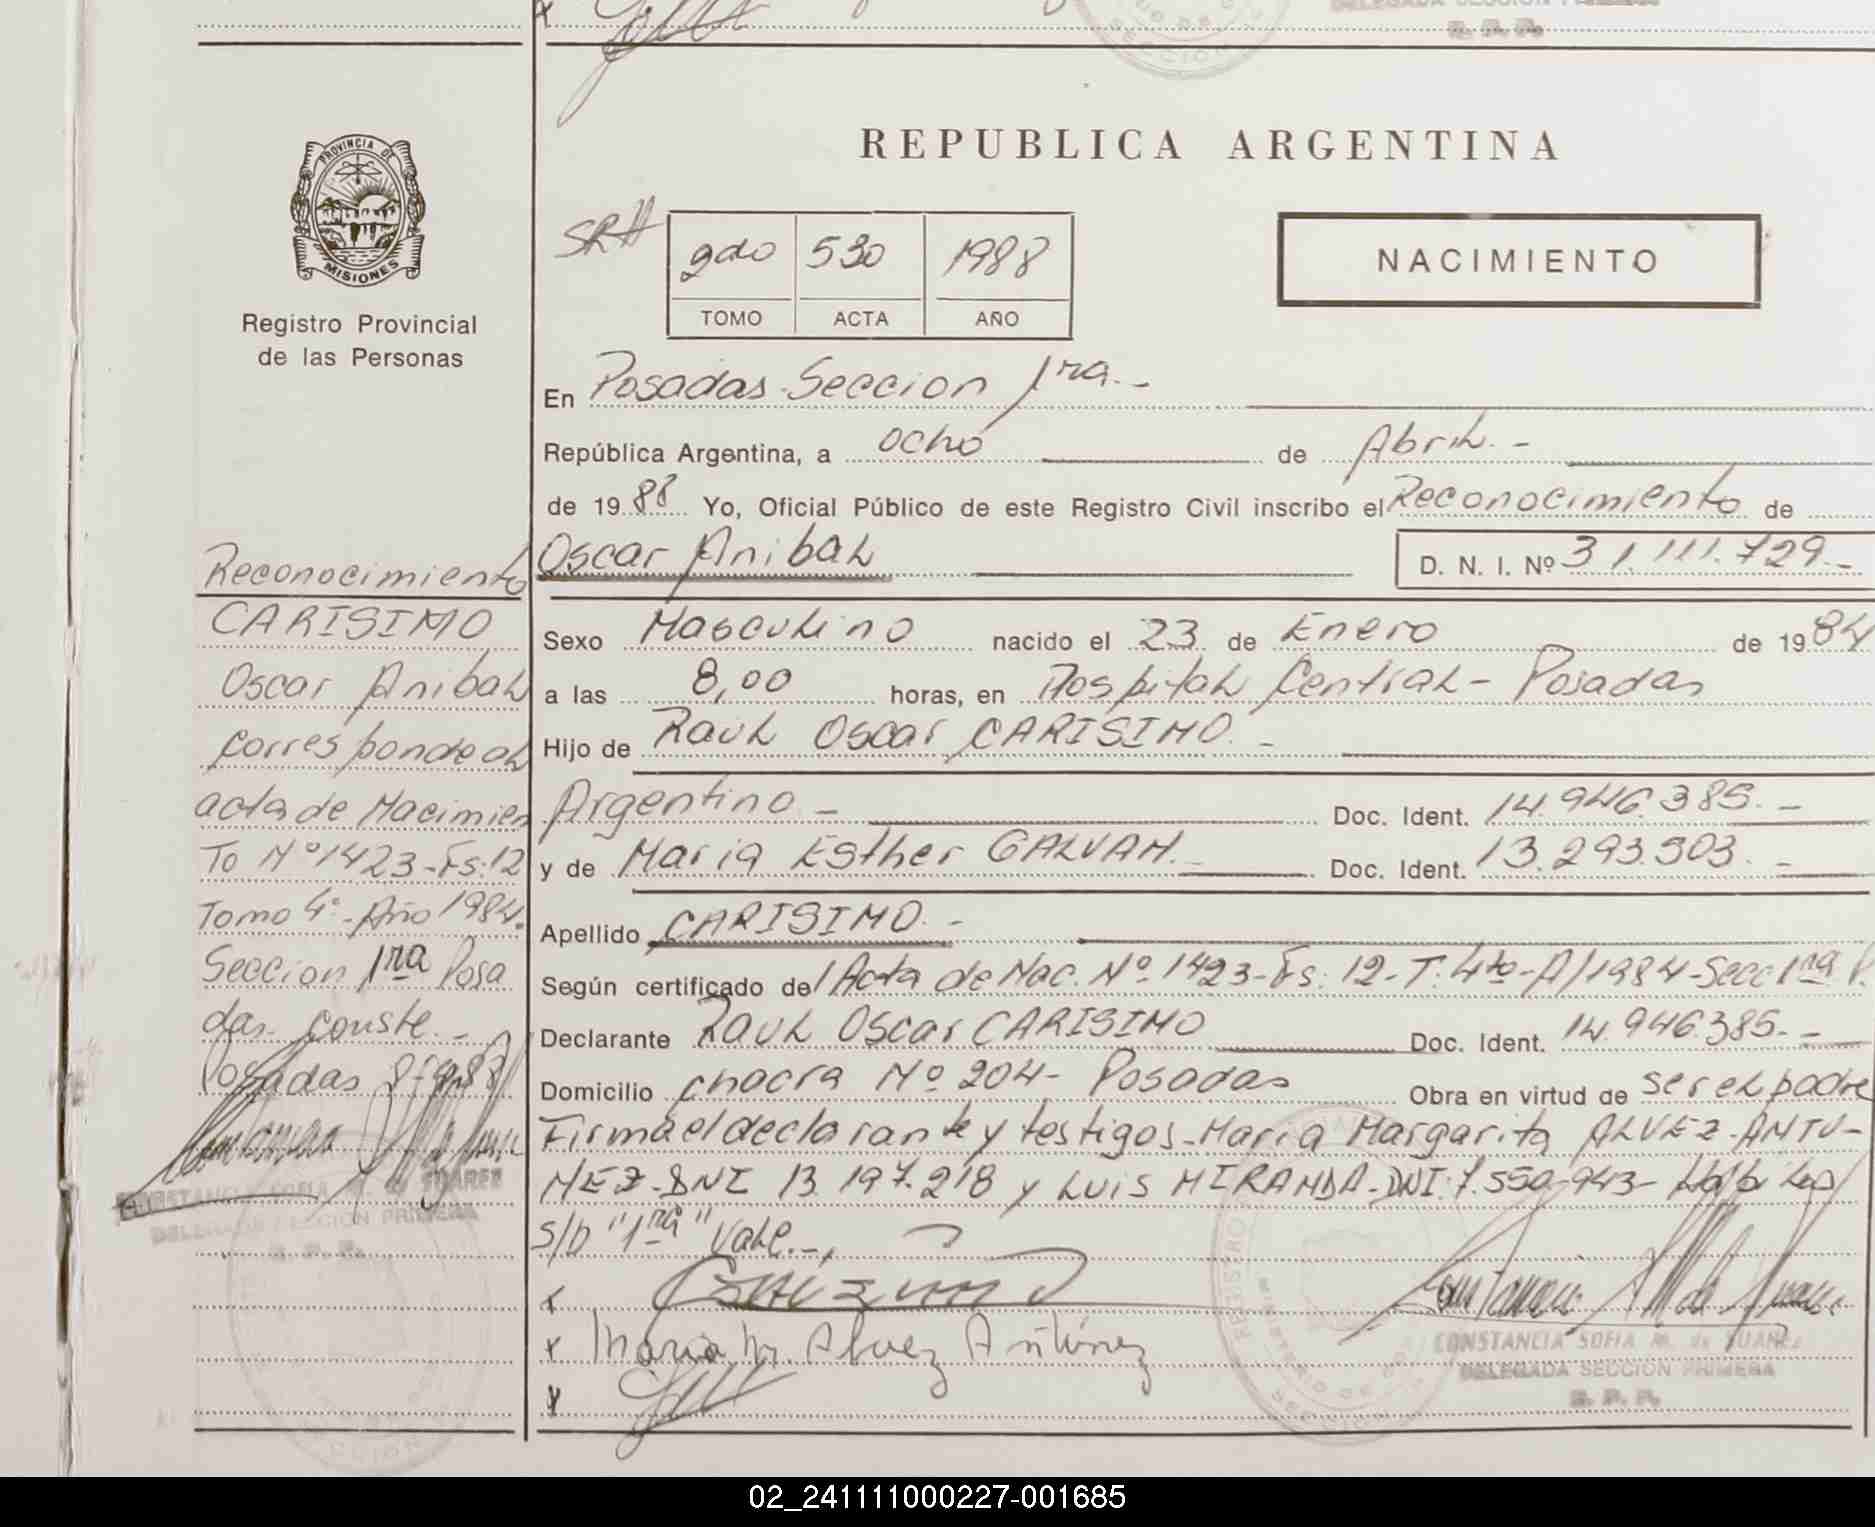 DELEGADA SECCION PRIMERA
R. P. P.
PROVINCIA DE
MISIONES
Registro Provincial
de las Personas
REPUBLICA ARGENTINA
NACIMIENTO
2do 530 1988
TOMO ACTA AÑO
En Posadas-Seccion 1ra.-
República Argentina, a ocho de Abril.-
de 1988 Yo, Oficial Público de este Registro Civil inscribo el Reconocimiento de
Oscar Anibal D. N. I. Nº 31.111.729.-
Sexo Masculino nacido el 23 de Enero de 1984
a las 8,00 horas, en Hospital Central - Posadas
Hijo de Raul Oscar CARISIMO.-
Argentino.- Doc. Ident. 14.946.385.-
y de Maria Esther GALVAN.- Doc. Ident. 13.293.503.-
Apellido CARISIMO.-
Según certificado de Acta de Nac. Nº 1423-Fs: 12-T: 4to-A/1984-Secc 1ra P.
Declarante Raul Oscar CARISIMO Doc. Ident. 14.946.385.-
Domicilio chacra Nº 204- Posadas Obra en virtud de ser el padre
Firma el declarante y testigos-Maria Margarita ALVEZ-ANTU-
NEZ-DNI 13.197.218 y LUIS MIRANDA-DNI: 7.550.943-
s/b "1ra" vale.-
x
x Maria M. Alvez Antúnez
x
CONSTANCIA SOFIA M. de SUAREZ
DELEGADA SECCION PRIMERA
R. P. P.
Reconocimiento
CARISIMO
Oscar Anibal
corresponde al
acta de Nacimien
To Nº 1423-Fs: 12
Tomo 4º-Año 1984.
Seccion 1ra Posa
das- conste.-
Posadas 8-4-88
CONSTANCIA SOFIA M. de SUAREZ
DELEGADA SECCION PRIMERA
R. P. P.
02_241111000227-001685